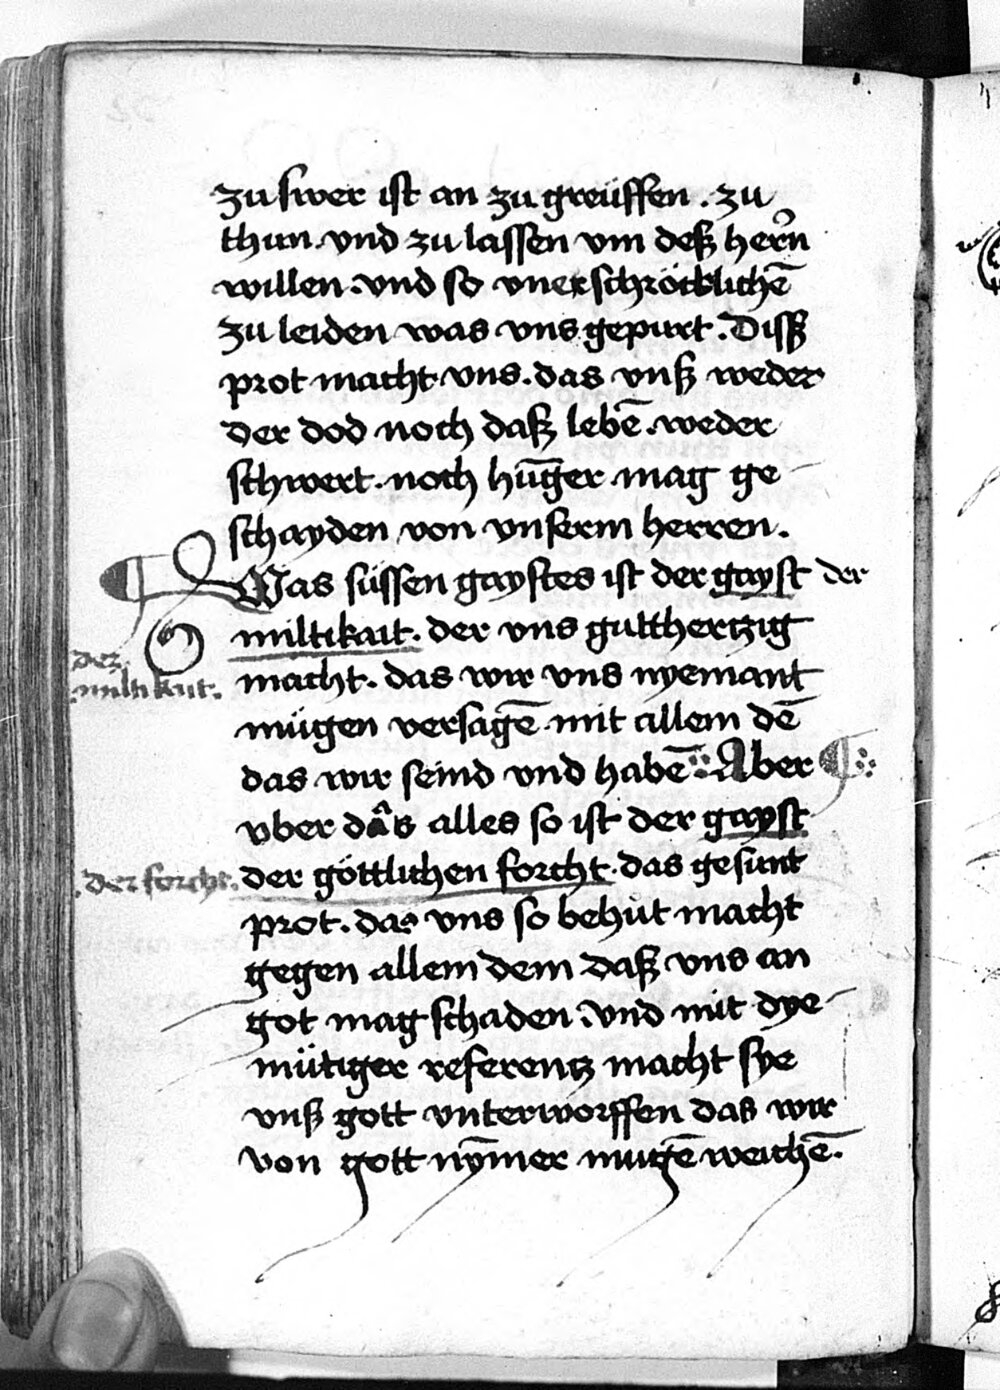 zu swer ist an zu greüffen . zu
thun . vnd zu lassen vm deß herrn
willen . vnd so vnerschröcklichē
zu leiden was vns gepurt . Disß
prot macht vns . das vnß weder
der dod noch daß lebē . weder
schwert . noch hūger mag ge
schayden von vnserm herren .
Was süssen gaystes ist der gayst der
miltikait . der vns gutthertzig
der miltikait .
macht . das wir vns nyemant
mügen versagē mit allem dē
das wir seind vnd habē : Aber
vber das alles so ist der gayst
der forcht . der göttlichen forcht . das gesunt
prot . das vns so behůt macht
gegen allem dem daß vns an
got mag schaden : vnd mit dye
mütiger referentz macht sye
vnß gott vnterworffen das wir
von gott nȳmer mugē weichē .